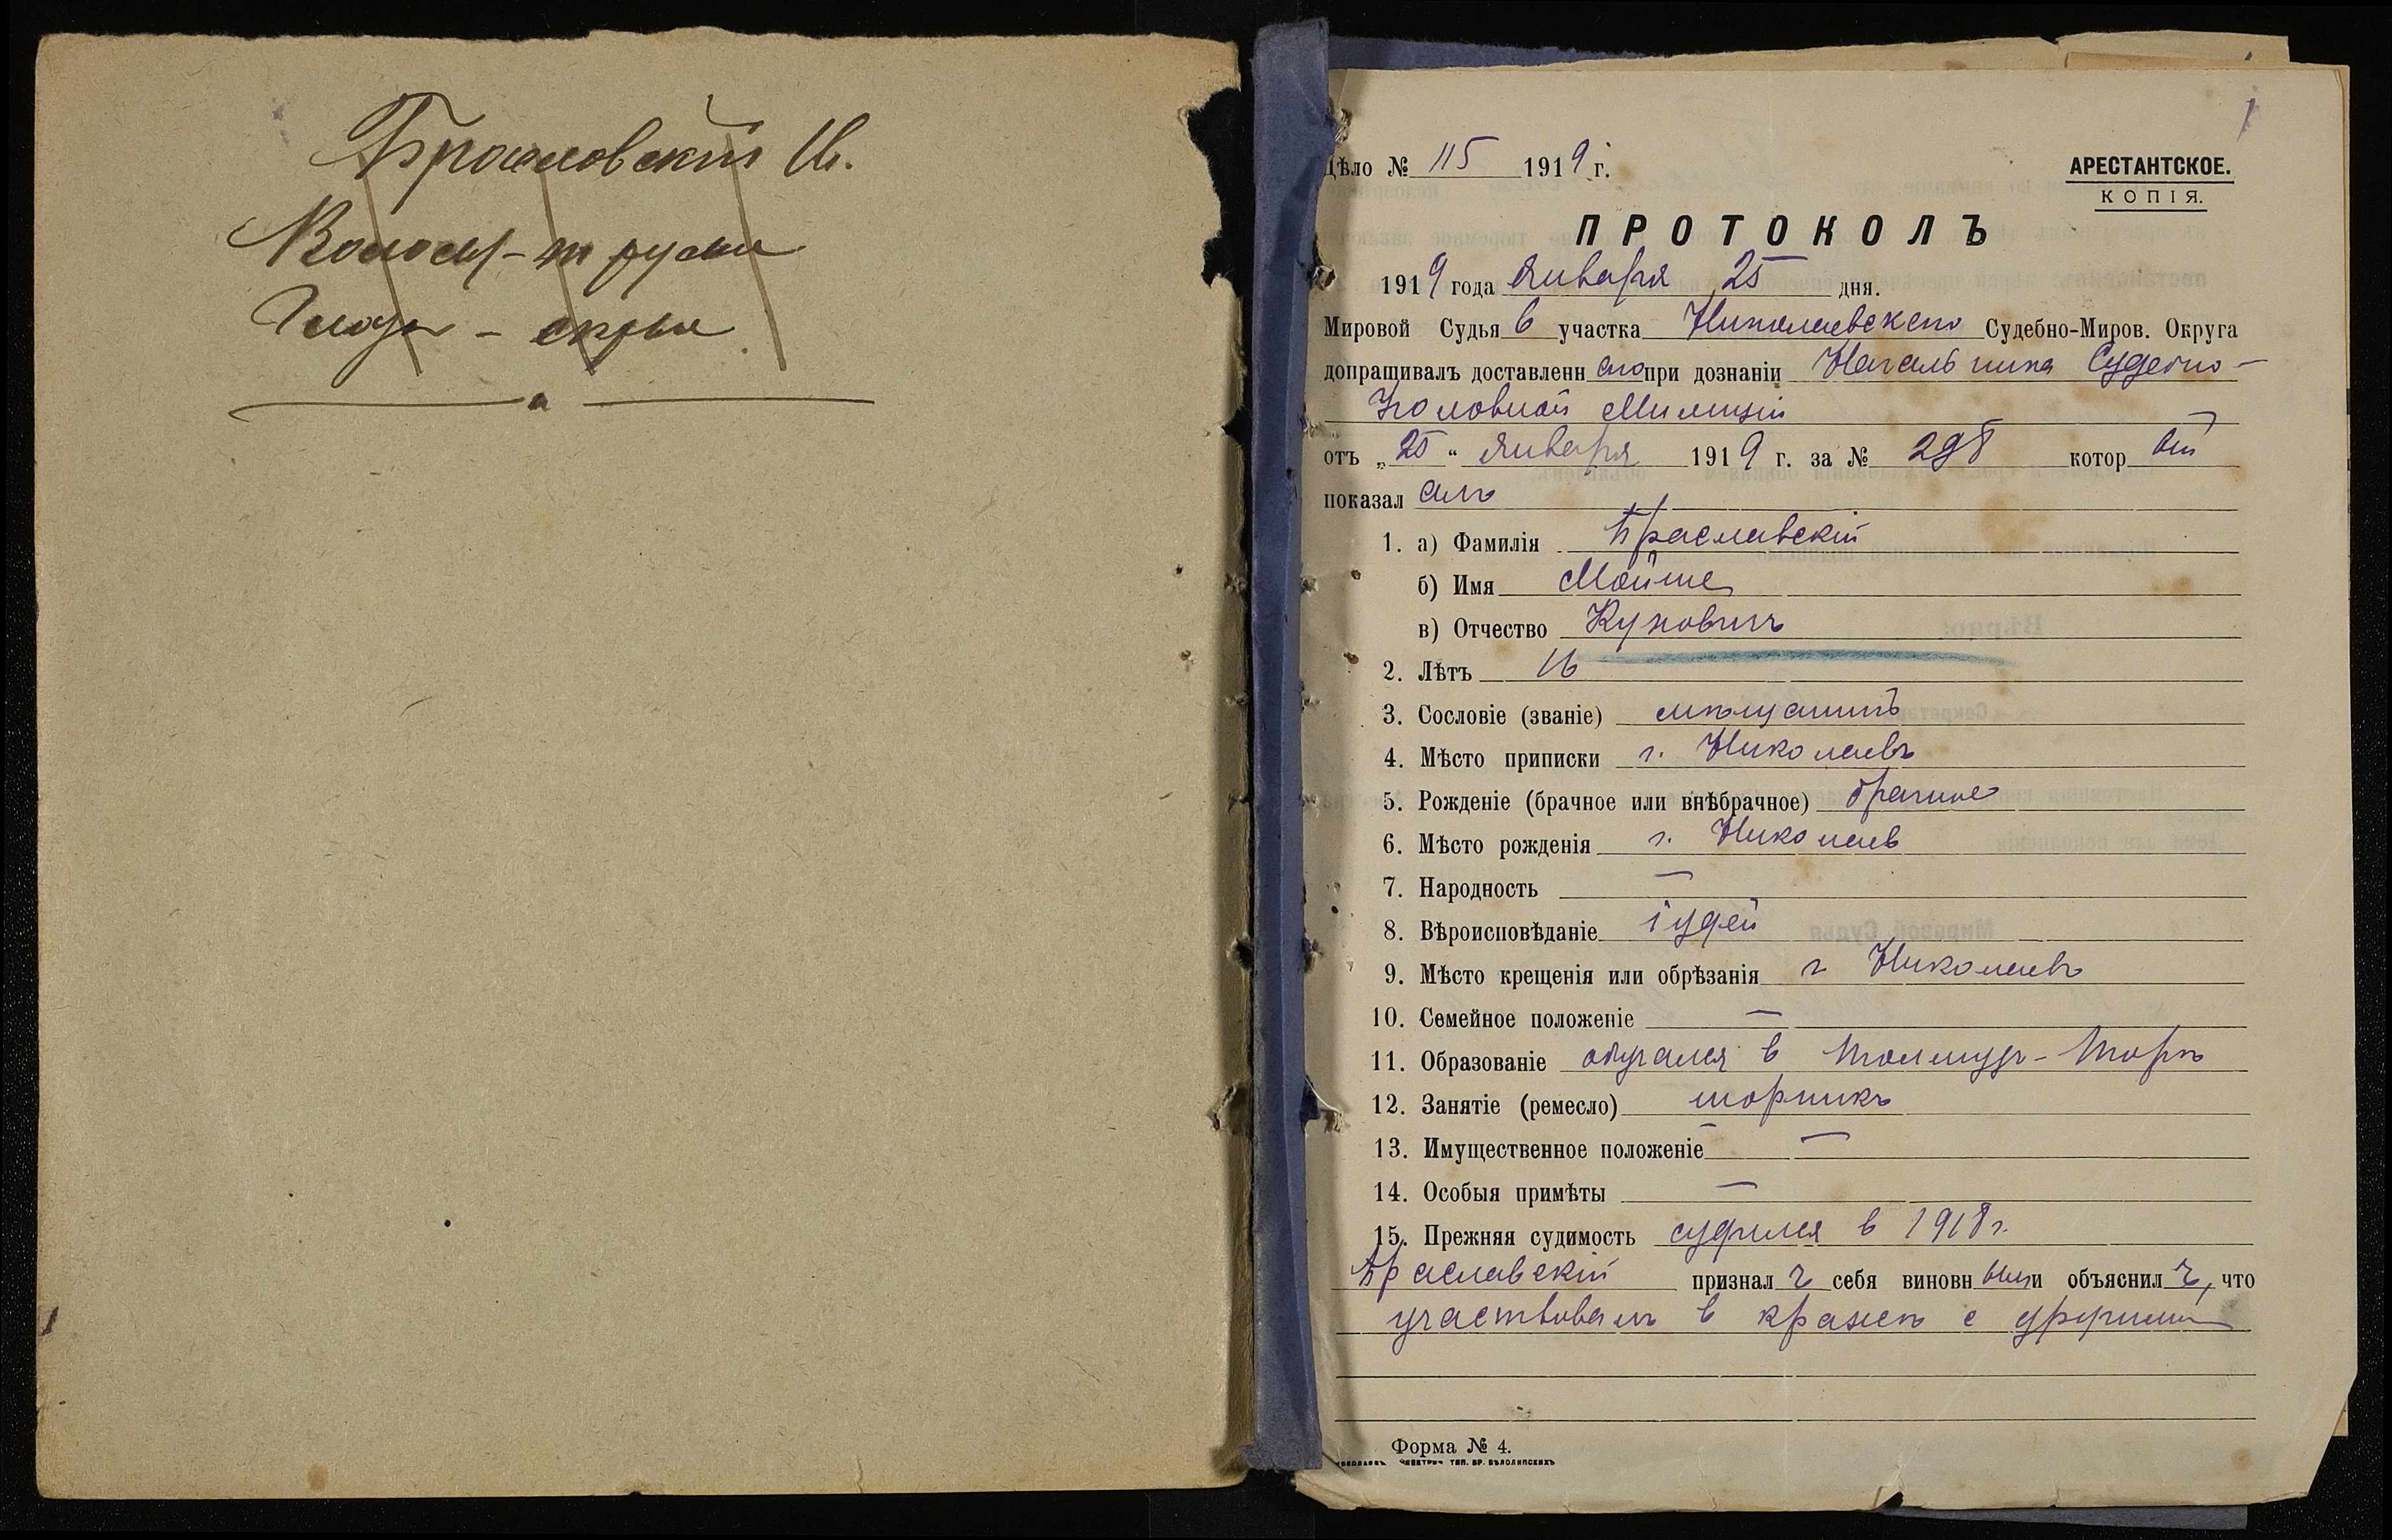 Брословскій
Волосы - т русые
Глаза - сѣрые
1
Дѣло № 115 1919 г.
АРЕСТАНТСКОЕ.
КОПІЯ.
ПРОТОКОЛЪ
1919 года Января 25 дня.
Мировой Судья 6 участка Николаевскаго Судебно-Миров. Округа
допрашивалъ доставленнаго при дознаніи Начальника Судебно-
Уголовной Милиціи
отъ „25“ Января 1919 г. за № 298 который
показалалъ
1. а) Фамилія Браславскій
б) Имя Мойше
в) Отчество
2. Лѣтъ 16
3. Сословіе (званіе) мѣщанинъ
4. Мѣсто приписки г. Николаевъ
5. Рожденіе (брачное или внѣбрачное) брачное
6. Мѣсто рожденія г. Николаев
7. Народность —
8. Вѣроисповѣданіе іудей
9. Мѣсто крещенія или обрѣзанія г Николаевъ
10. Семейное положеніе —
11. Образованіе обучался в Толмудъ-Торѣ
12. Занятіе (ремесло) шорникъ
13. Имущественное положеніе —
14. Особыя примѣты —
15. Прежняя судимость судился в 1918 г.
Браславскій призналъ себя виновнымъ и объяснилъ, что
участвовалъ в кражѣ с другими
Форма № 4.